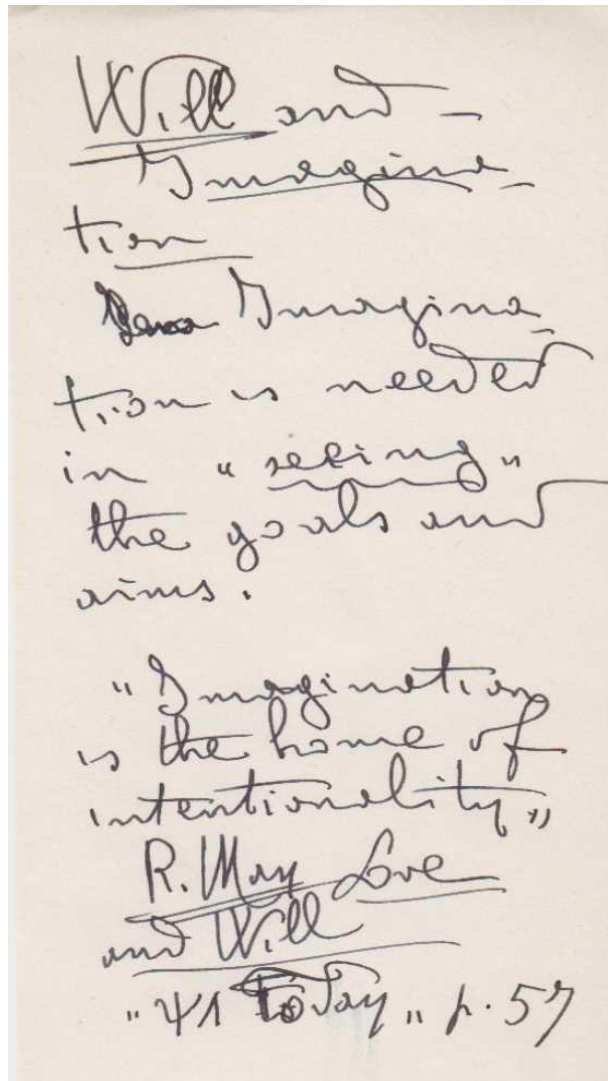 Will and -
Imagina-
tion
Imagina-
tion is needed
in "seeing"
the goals and
aims.
"Imagination
is the home of
intentionality"
R. May Love
and Will
"Ψ Today" p. 57